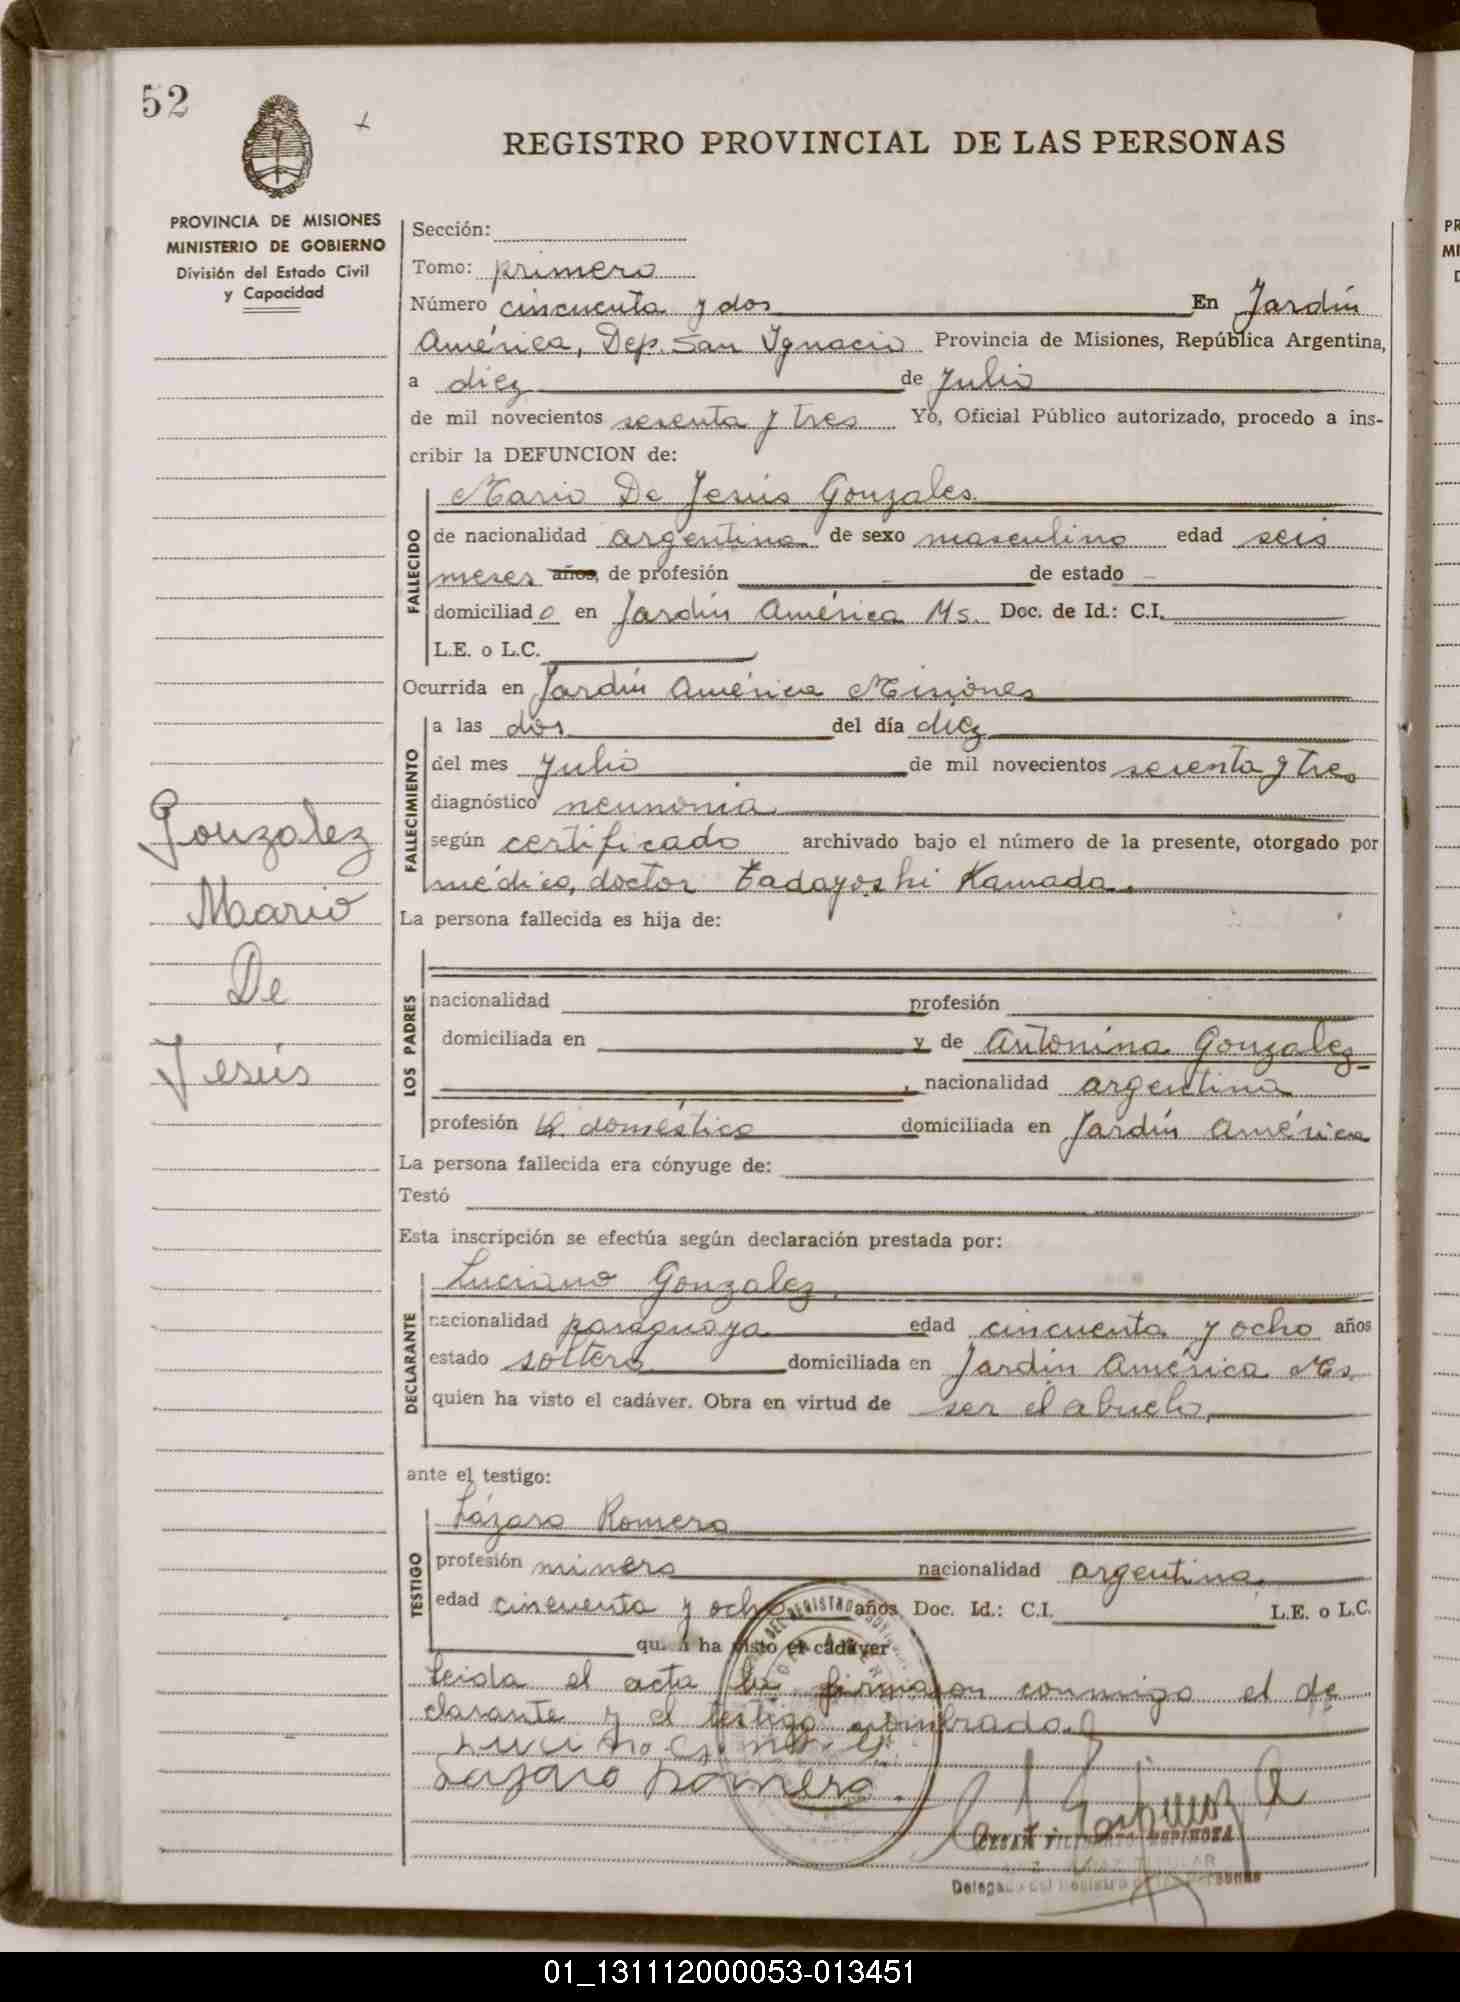 52
REGISTRO PROVINCIAL DE LAS PERSONAS
PROVINCIA DE MISIONES
MINISTERIO DE GOBIERNO
División del Estado Civil
y Capacidad
Gonzalez
Mario
De
Jesús
Sección:
Tomo: primero
Número cincuenta y dos En Jardín
América, Dep. San Ignacio Provincia de Misiones, República Argentina,
a diez de Julio
de mil novecientos sesenta y tres Yo, Oficial Público autorizado, procedo a ins-
cribir la DEFUNCION de:
FALLECIDO
Mario De Jesús Gonzales
de nacionalidad argentina de sexo masculino edad seis
meses años, de profesión de estado
domiciliado en Jardín América Ms. Doc. de Id.: C.I.
L.E. o L.C.
Ocurrida en Jardín América Misiones
FALLECIMIENTO
a las dos del día diez
del mes Julio de mil novecientos sesenta y tres
diagnóstico neumonia
según certificado archivado bajo el número de la presente, otorgado por
médico, doctor Tadayoshi Kamada.
La persona fallecida es hija de:
LOS PADRES
nacionalidad profesión
domiciliada en y de Antonina Gonzalez
, nacionalidad argentina
profesión q. doméstico domiciliada en Jardín América
La persona fallecida era cónyuge de:
Testó
Esta inscripción se efectúa según declaración prestada por:
DECLARANTE
Luciano Gonzalez.
nacionalidad paraguaya edad cincuenta y ocho años
estado soltero domiciliada en Jardín América Ms.
quien ha visto el cadáver. Obra en virtud de ser el abuelo,
ante el testigo:
TESTIGO
Lázaro Romero
profesión minero nacionalidad argentina.
edad cincuenta y ocho años Doc. Id.: C.I. L.E. o L.C.
quien ha visto el cadáver
Leida el acta la firmaron conmigo el de
clarante y el testigo nombrado.
Lazaro Romero.
Delegado del Registro de las Personas
01_131112000053-013451